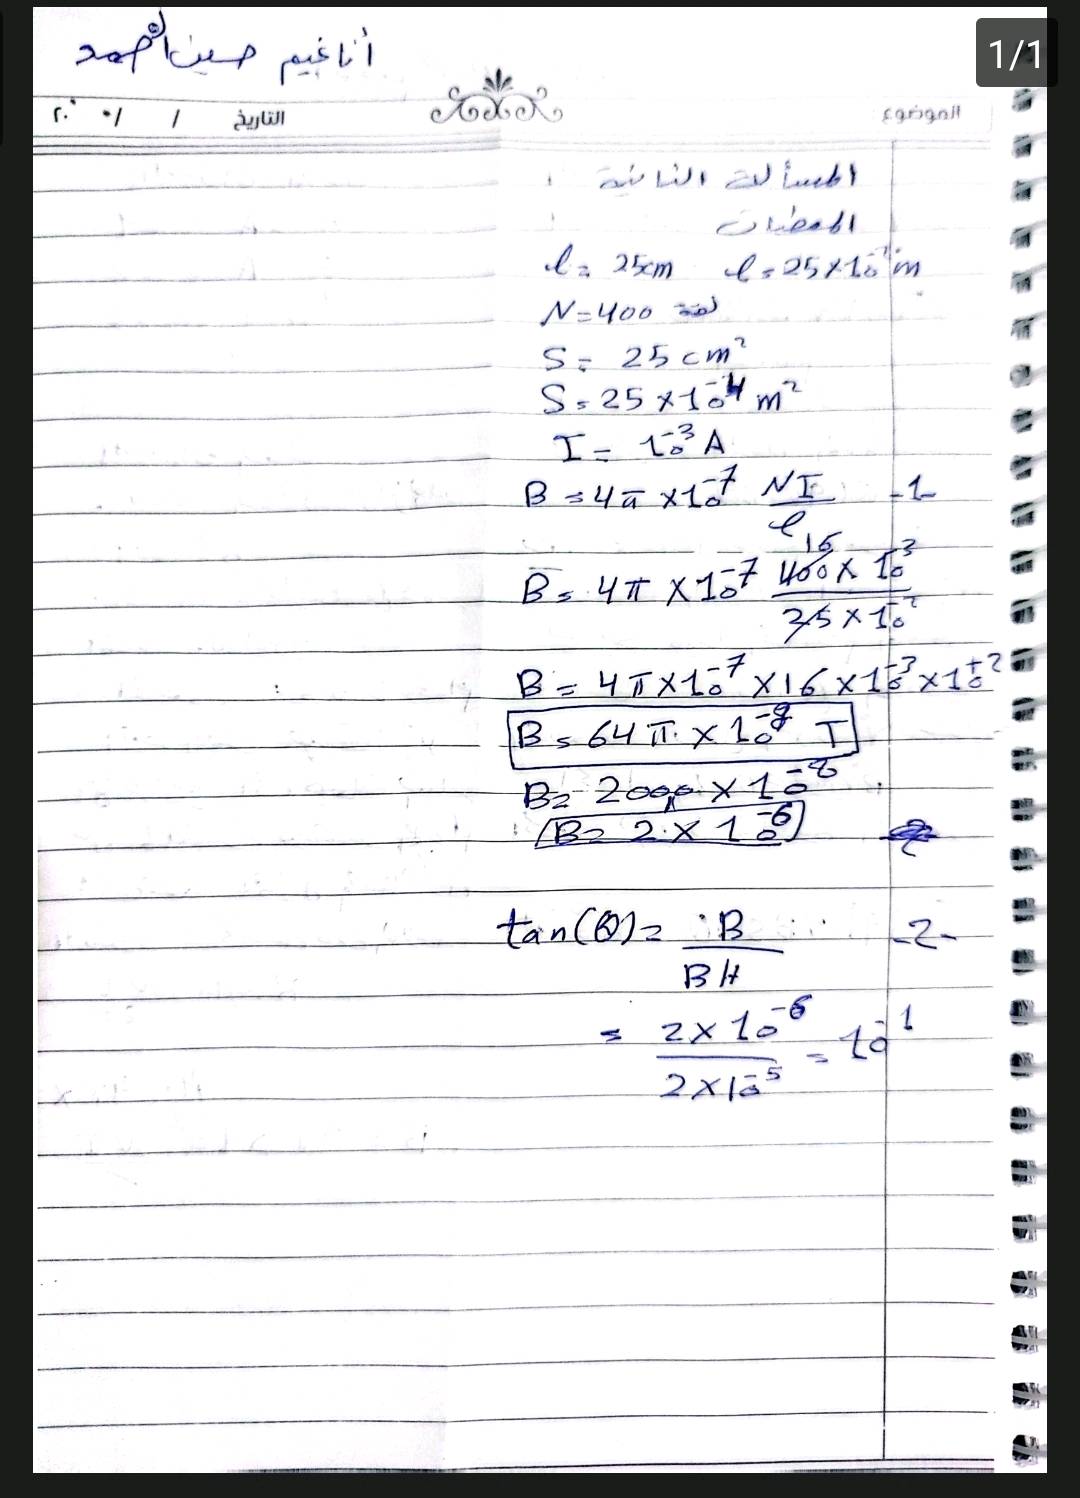 1/1
أنا غيم حسين الأحمد
الموضوع
التاريخ / / ٢٠
المسألة الثانية
المعطيات
l = 25cm l = 25×10⁻² m
N = 400 لفة
S = 25 cm²
S = 25 × 10⁻⁴ m²
I = 10⁻³ A
-1- B = 4π × 10⁻⁷ NI/l
B = 4π × 10⁻⁷ 400 × 10⁻³ / 25 × 10⁻² 16
B = 4π × 10⁻⁷ × 16 × 10⁻³ × 10⁺²
B = 64π × 10⁻⁸ T
B = 200 × 10⁻⁸
B = 2 × 10⁻⁶
-2- tan(θ) = B/BH
= 2 × 10⁻⁶ / 2 × 10⁻⁵ = 10⁻¹